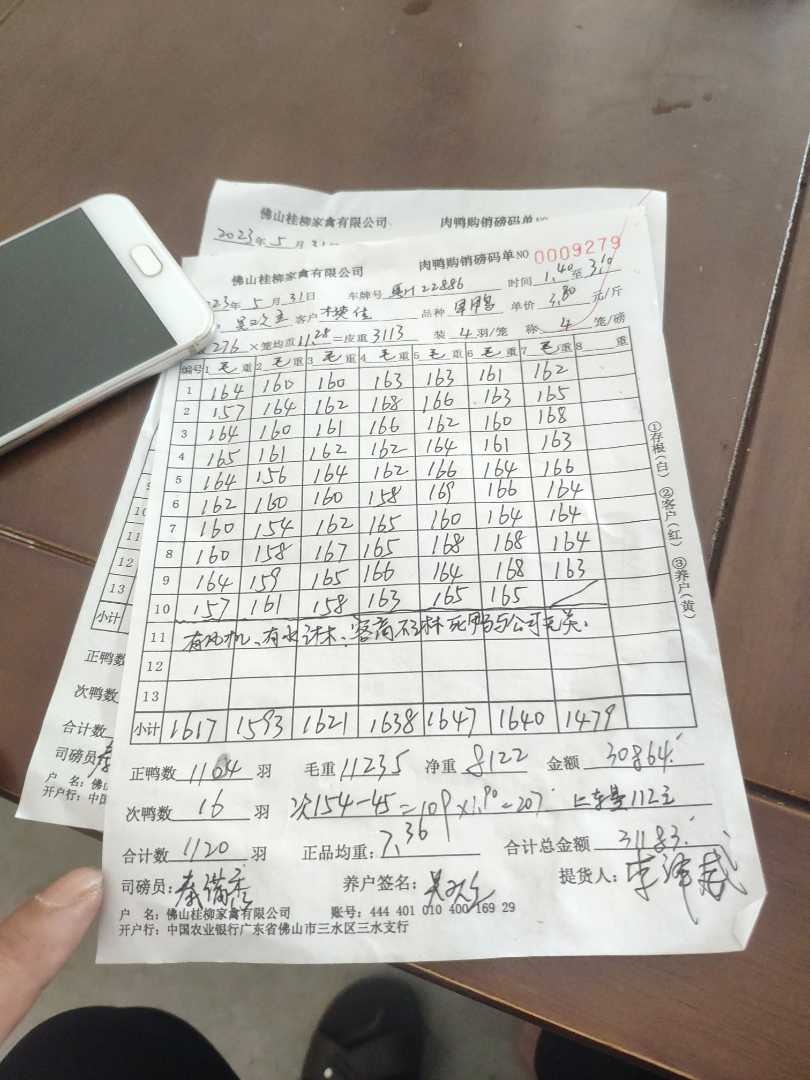 佛山桂柳家禽有限公司 肉鸭购销磅码单NO
2023年5月31
佛山桂柳家禽有限公司 肉鸭购销磅码单NO 0009279
23年5月31日 车牌号 22886 时间 1.40至3.10
客户 品种 单价 3.80 元/斤
276 ×笼均重11.28=皮重3113 装 4 羽/笼 称 4 笼/磅
编号 1 毛 重 2 毛 重 3 毛 重 4 毛 重 5 毛 重 6 毛 重 7 毛 重 8 重
1 164 160 160 163 163 161 162
2 157 164 162 168 166 163 165
3 164 160 161 166 162 160 168
4 165 161 162 162 164 161 163
5 164 156 164 162 166 164 166
6 162 160 160 158 169 166 164
7 160 154 162 165 160 164 164
8 160 158 167 165 168 168 164
9 164 159 165 166 164 168 163
10 157 161 158 163 165 165
11 有风机、有水 死鸭与公司无关.
12
13
小计 1617 1593 1621 1638 1647 1640 1479
①存根(白) ②客户(红) ③养户(黄)
正鸭数 1104 羽 毛重 11235 净重 8122 金额 30864
次鸭数 16 羽 次154-45=109×1.90=207 上车 112
合计数 1120 羽 正品均重: 7.36 合计总金额 31183
司磅员: 养户签名: 提货人:
户 名: 佛山桂柳家禽有限公司 账号: 444 401 010 400 169 29
开户行: 中国农业银行广东省佛山市三水区三水支行
12
13
小计
正鸭数
次鸭数
合计数
司磅员
户 名: 佛
开户行: 中国